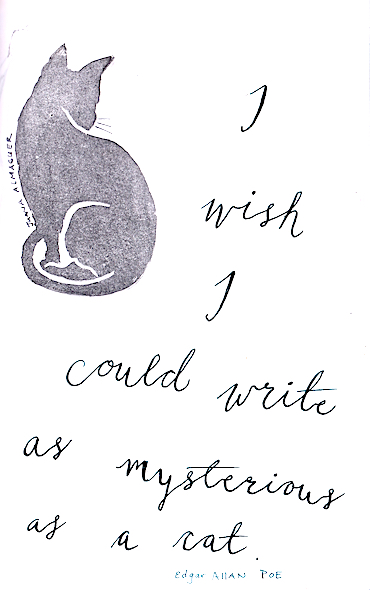 I
wish
I
could write
as mysterious
as a cat.
Edgar Allan Poe